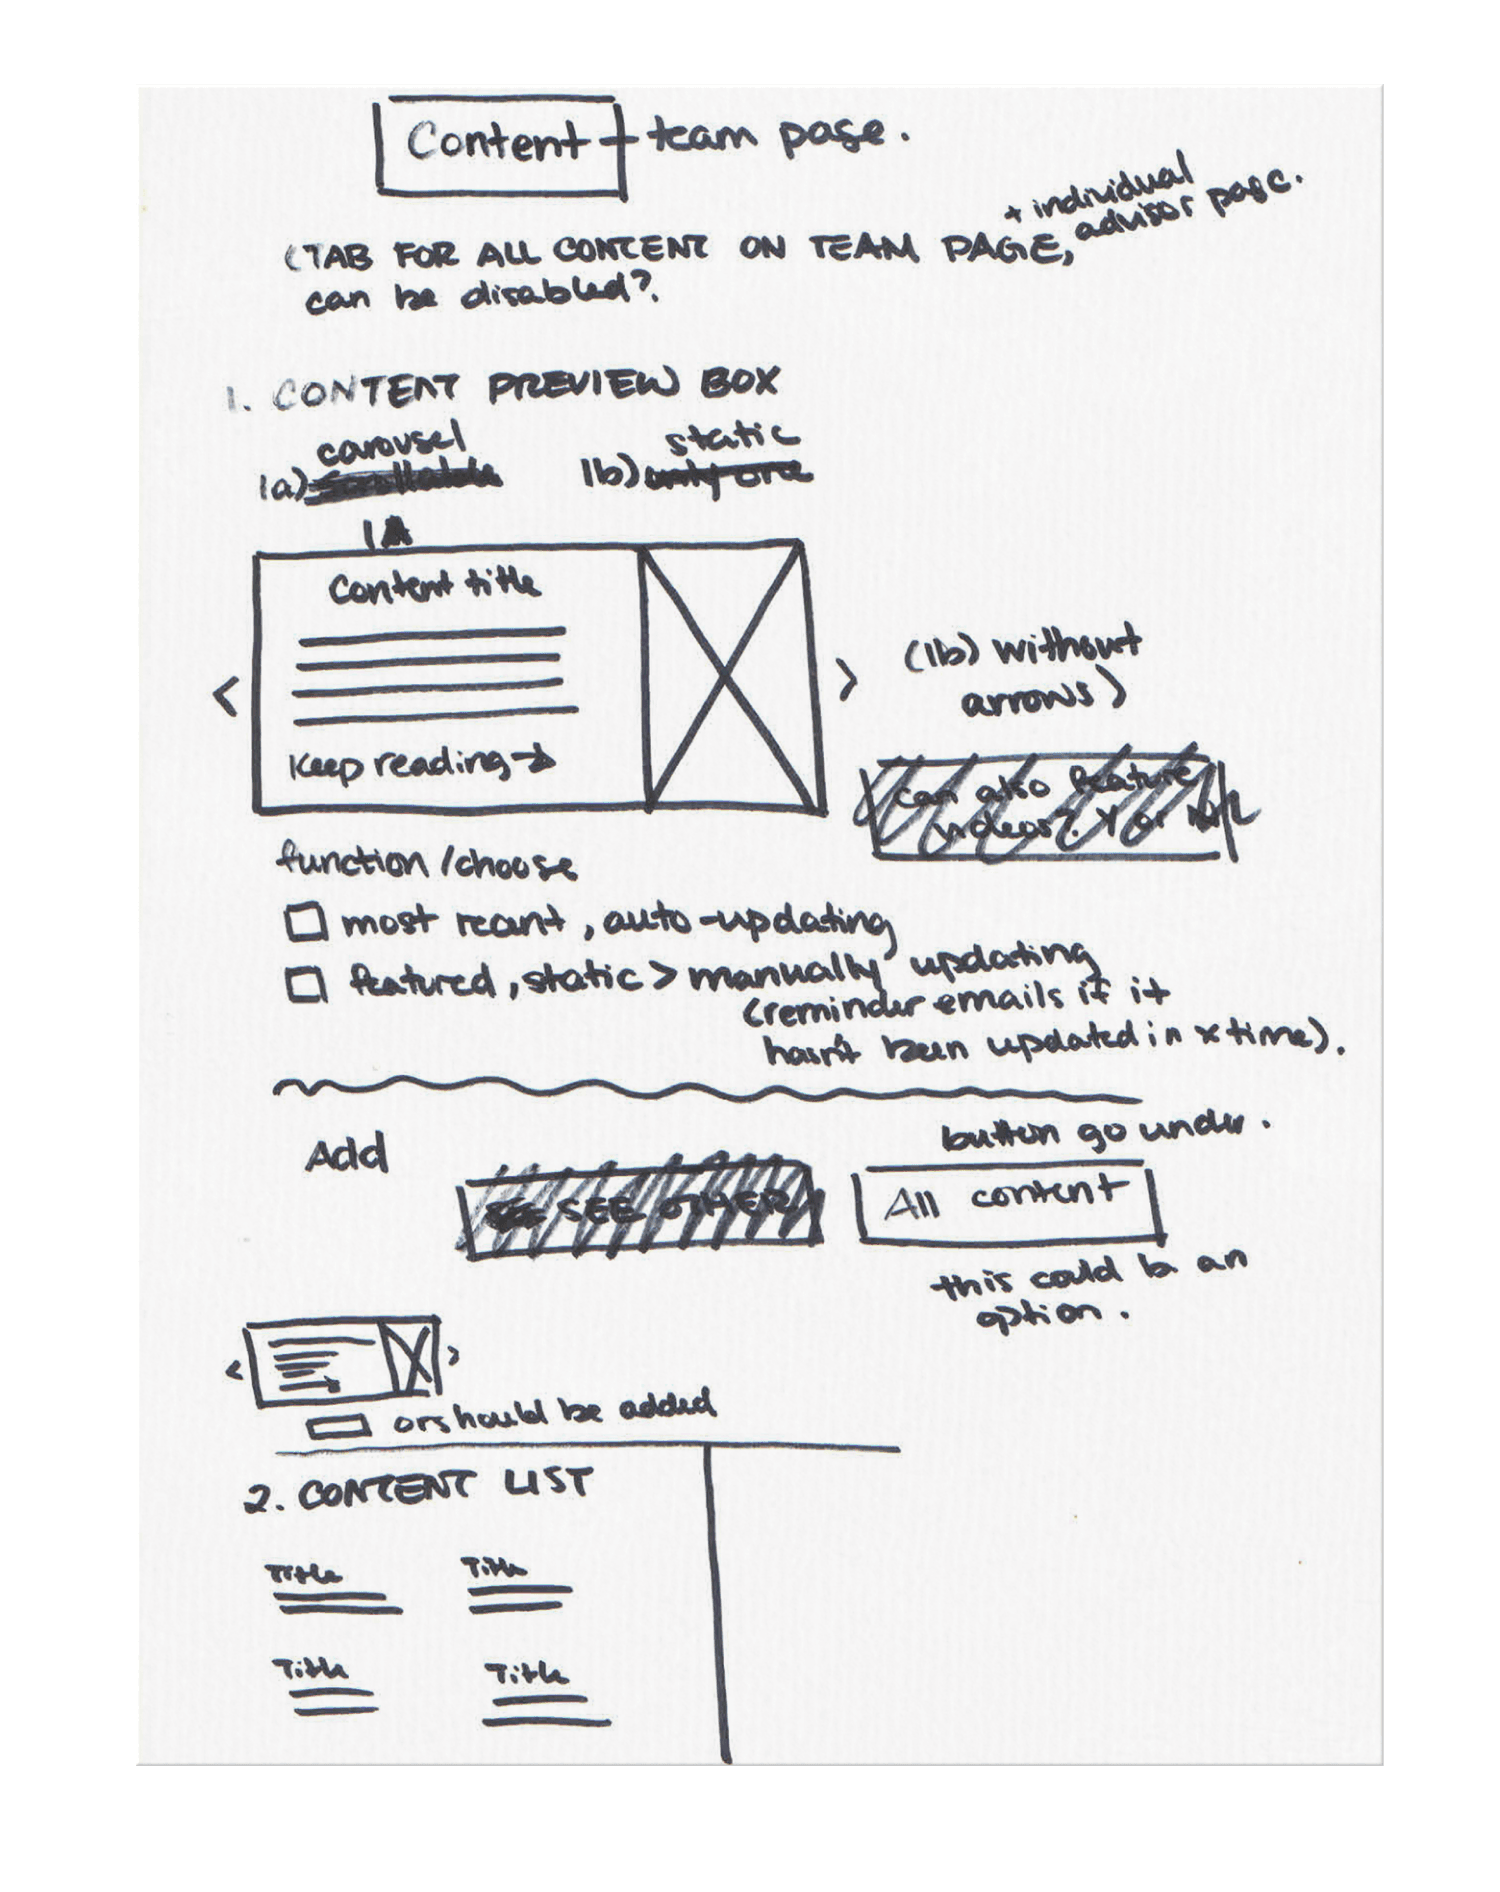 Content - team page.
+ individual
advisor page.
(TAB FOR ALL CONTENT ON TEAM PAGE,
can be disabled?.
1. CONTENT PREVIEW BOX
carousel
static
1a) scrollable
1b) only one
1A
Content title
<
>
(1b) without
arrows)
Keep reading →
can also feature
videos? Y or N
function / choose
most recent, auto-updating
featured, static > manually updating
(reminder emails if it
hasn't been updated in x time).
button go under.
Add
SEE OTHER
All content
this could be an
option.
<
>
or should be added
2. CONTENT LIST
Title
Title
Title
Title